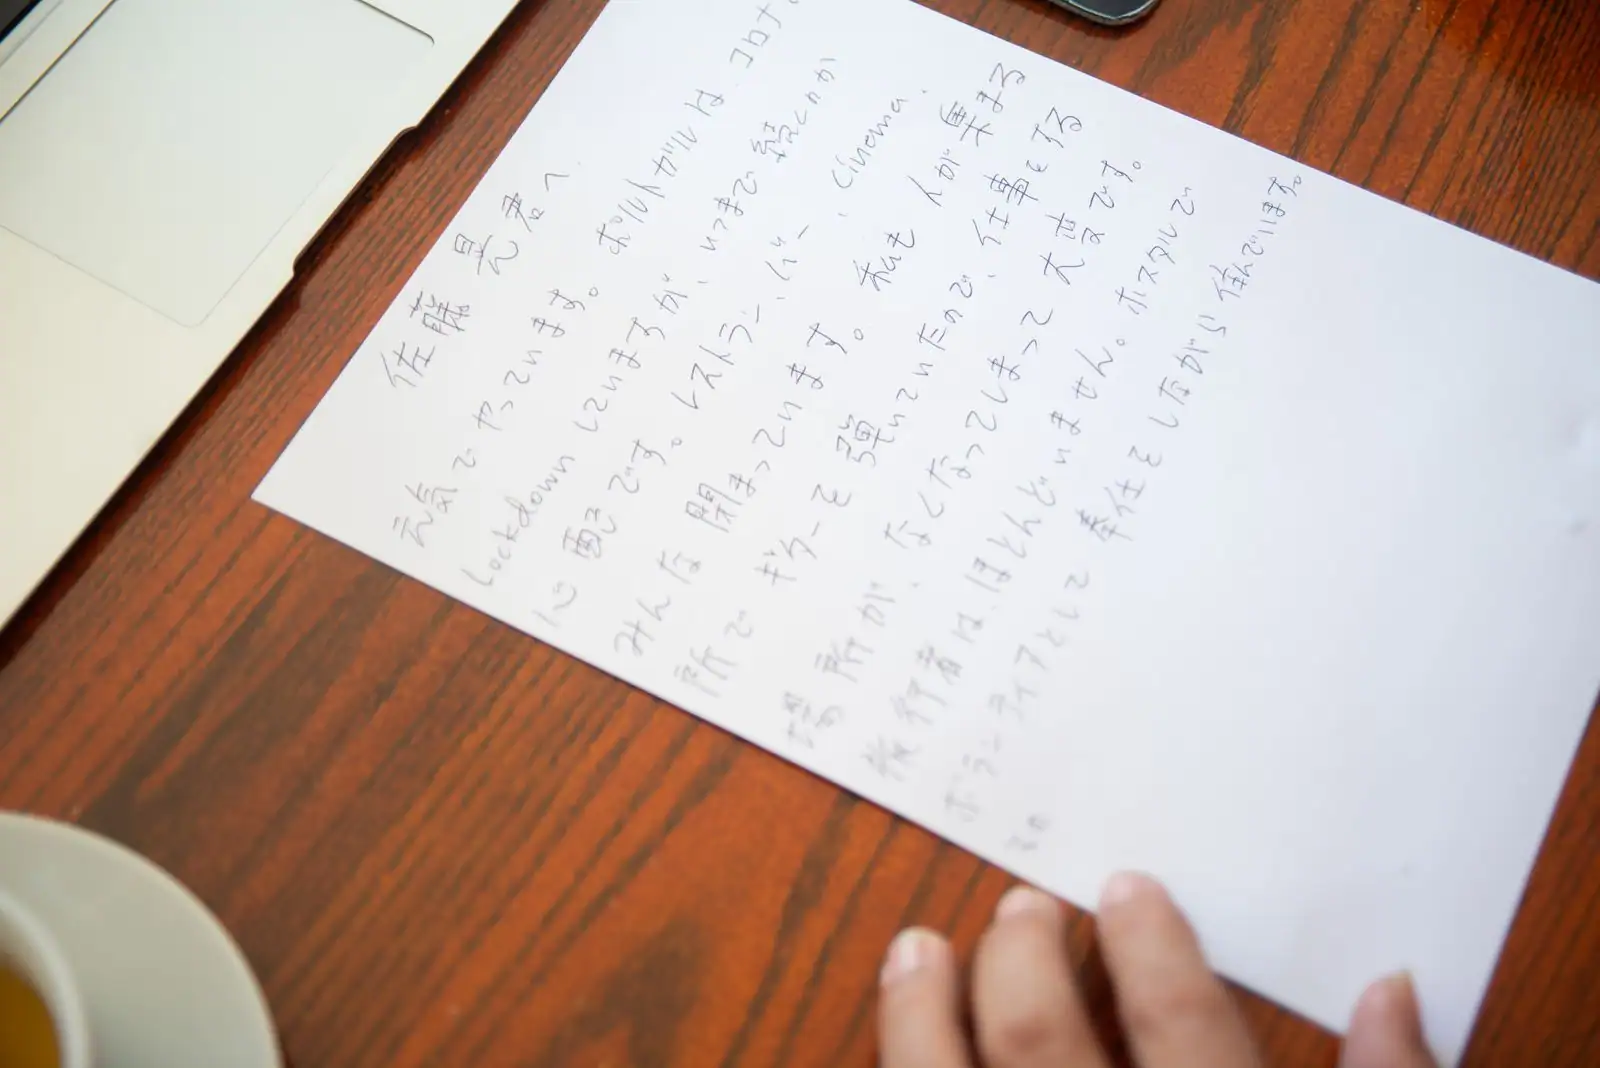 佐藤 晃 君へ
元気でやっています。ポルトガルは コロナで
Lockdown していますが、いつまで続くのか
心配です。レストラン、バー、cinema.
みんな 閉まっています。私も 人が 集まる
所で ギターを 弾いていたので、仕事をする
場所が、なくなってしまって 大変です。
旅行者は、ほとんどいません。ホステルで
ボランティアとして 奉仕をしながら 住んでいます。